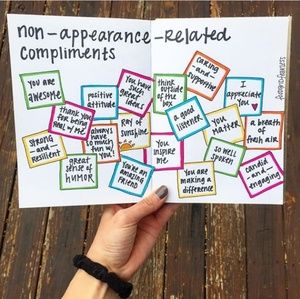 non-appearance-related
compliments
you are
awesome
positive
attitude
you have
such
great
ideas
think
outside
of the
box
caring
-and-
supportive
I
appreciate
you
thank you
for being
real w/ me
always
have
so much
fun w/
you!
ray of
sunshine
a good
listener
you
matter
a breath
of
fresh air
strong
-and-
resilient
great
sense of
humor
you're an
amazing
friend
you
inspire
me
you are
making a
difference
so well
spoken
candid
-and-
engaging